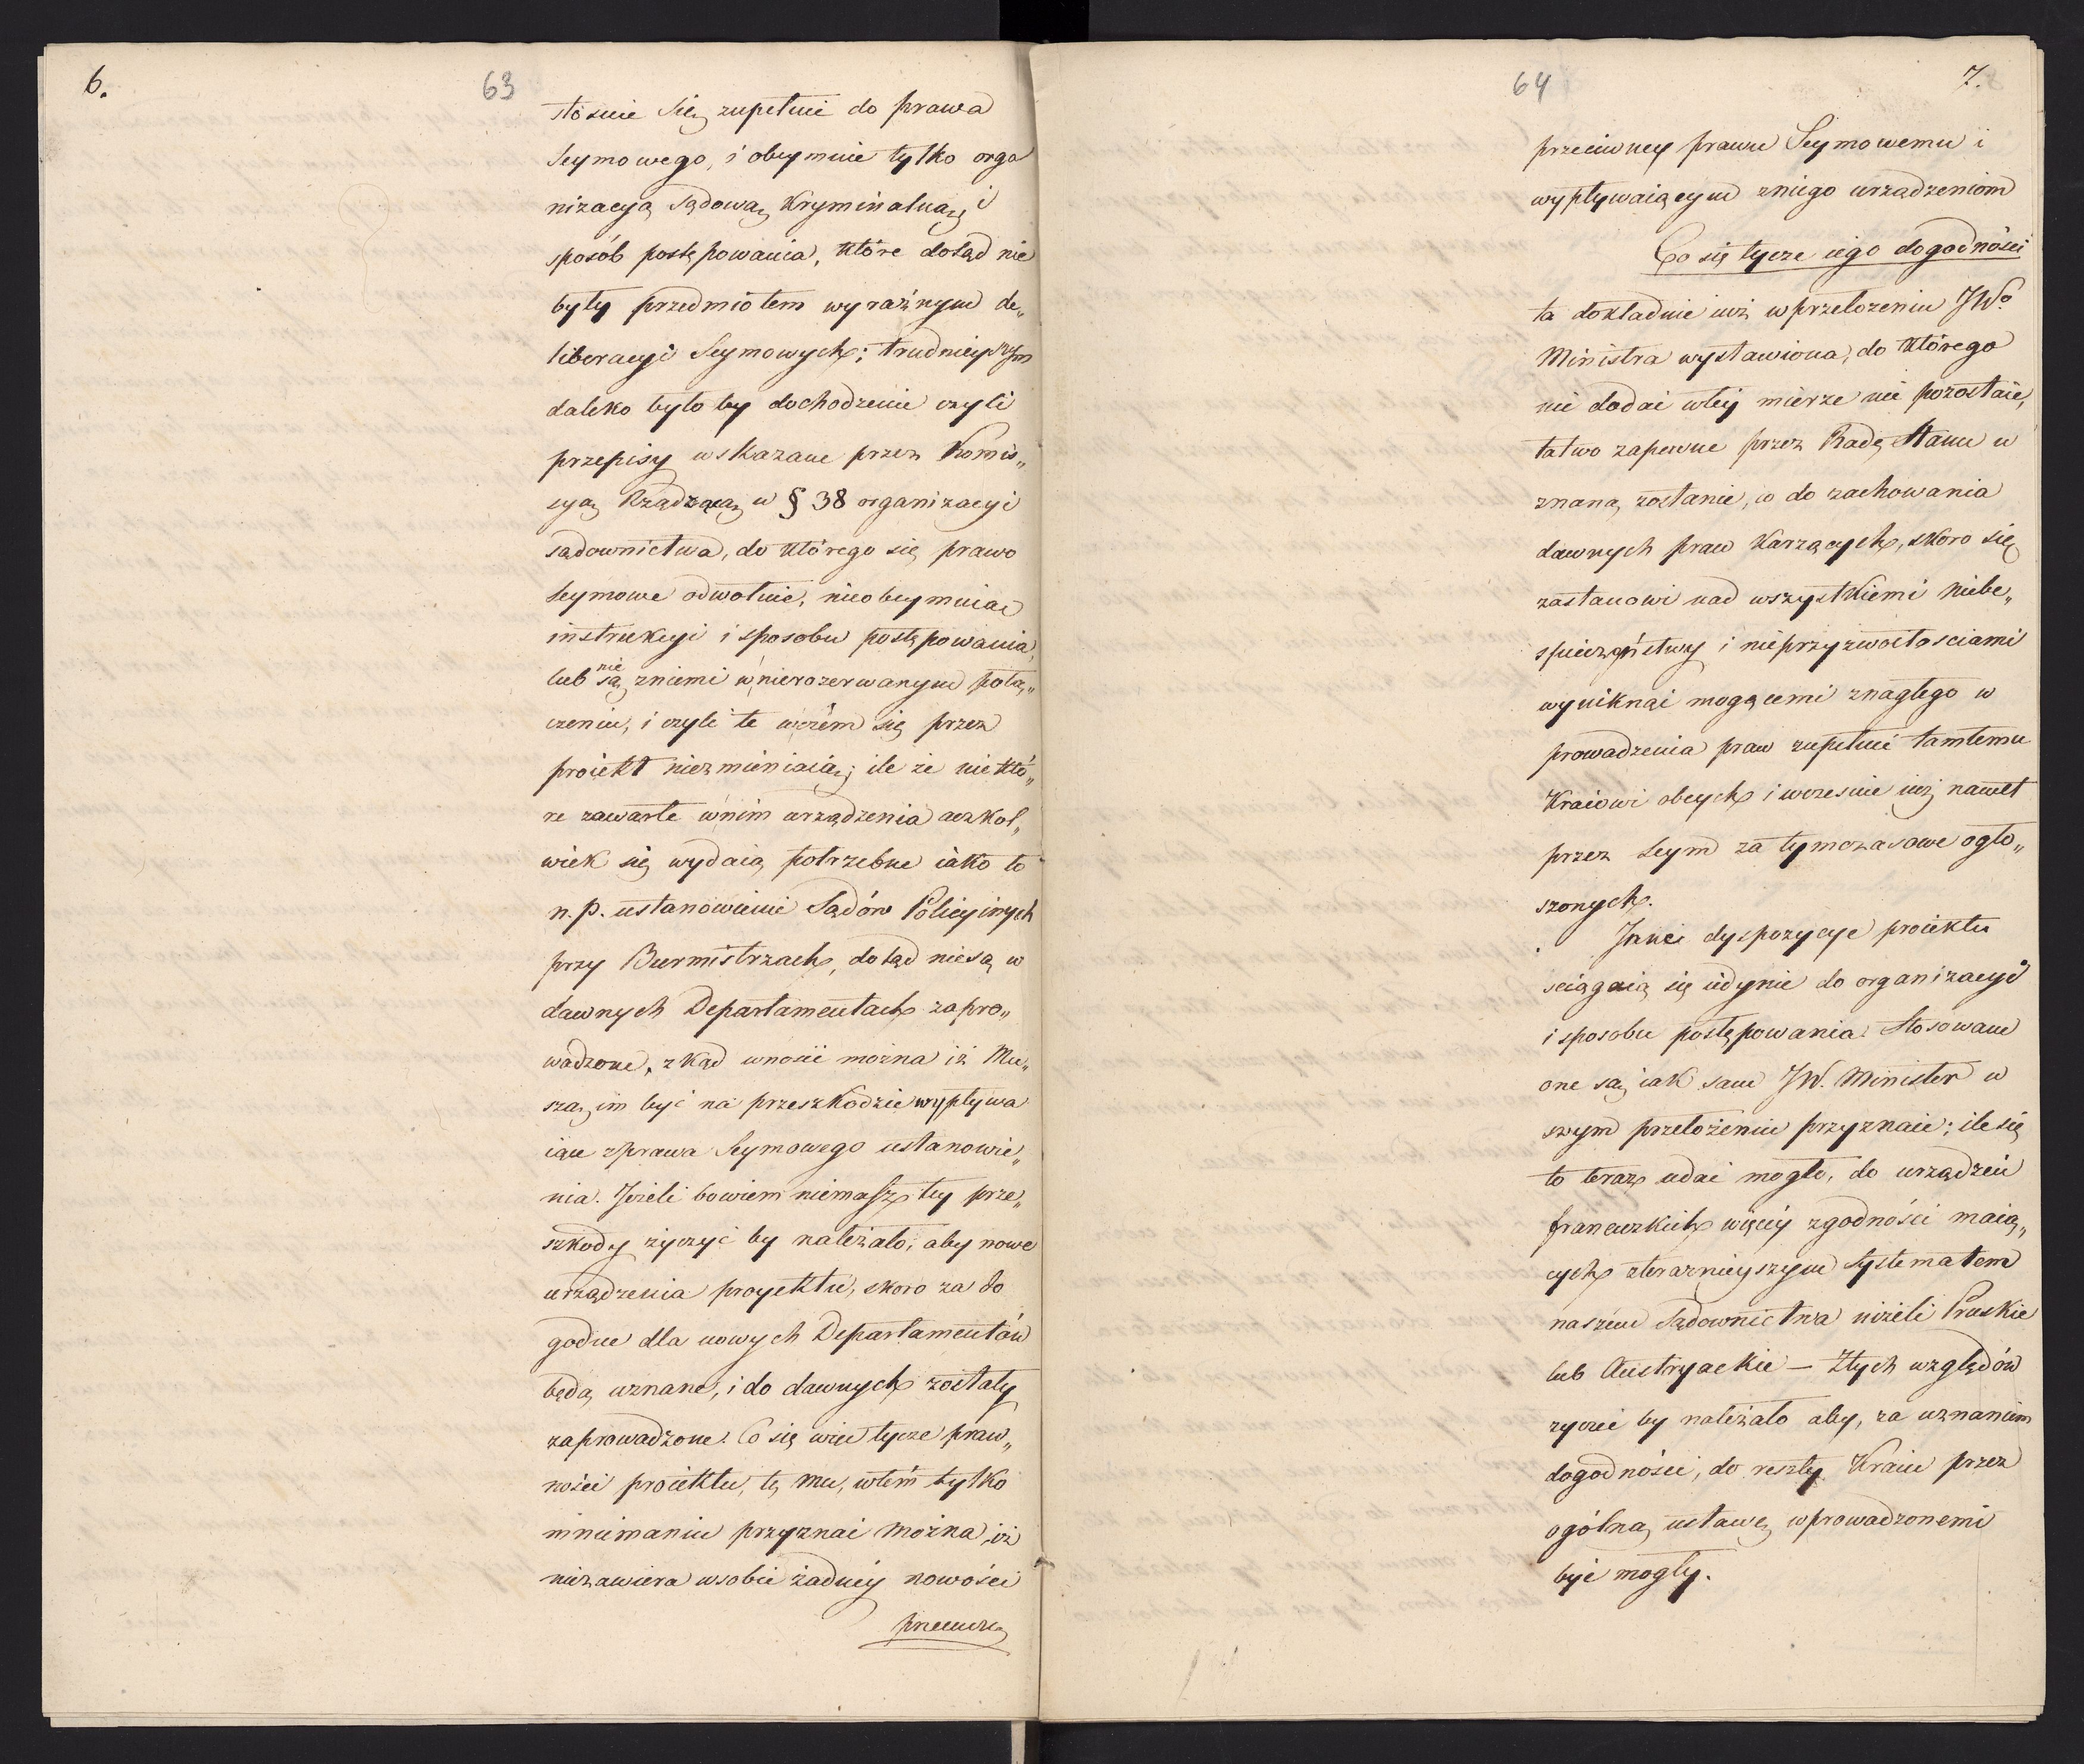 6.
63
stósuie się zupełnie do prawa
Seymowego, i obeymuie tylko orga
nizacyą Sądową Kryminalną i
sposób postępowania, które dotąd nie
były przedmiotem wyraźnym de„
liberacyi Seymowych; trudnieyszym
daleko było by dochodzenie czyli
przepisy wskazane przez Komis„
syą Rządzącą w § 38 organizacyi
sądownictwa, do którego się prawo
Seymowe odwołuie, nieobeymuiać
instrukcyi i sposobu postępowania,
lub nie są zniemi w nierozerwanym połą„
czeniu, i czyli te wczém się przez
proiekt niezmieniaią; ile że niektó„
re zawarte wnim urządzenia aczkol„
wiek się wydaią potrzebne iako to
n. p. ustanowienie Sądów Policyinych
przy Burmistrzach, dotąd niesą w
dawnych Departamentach zapro„
wadzone, zkąd wnosić można iż Mu„
szą im być na przeszkodzie wypływa
iące zprawa Seymowego ustanowie„
nia. Jeżeli bowiem niemasz tey prze„
szkody życzyć by należało, aby nowe
urządzenia proyektu, skoro za do
godne dla nowych Departamentów
będą uznane, i do dawnych zostały
zaprowadzone. Co się więc tycze praw„
ności proiektu, tę mu, wtém tylko
mniemaniu przyznać można, iż
niezawiera wsobie żadney nowości
przeciwney
64
7.
przeciwney prawu Seymowemu i
wypływaiącym zniego urządzeniom
Co się tycze iego dogodności
ta dokładnie iuż w przełożeniu JWo
Ministra wystawiona, do którego
nic dodać wtey mierze nie pozostaie,
łatwo zapewne przez Radę Stanu u
znaną zostanie, co do zachowania
dawnych praw Karzących, skoro się
zastanowi nad wszystkiemi niebe„
spieczeństwy i nieprzyzwoitosciami
wyniknąć mogącemi znagłego w
prowadzenia praw zupełnie tamtemu
Kraiowi obcych i wczesnie iuż nawet
przez Seym za tymczasowe ogło„
szonych.
Inne dyspozycye proiektu
sciągaią się iedynie do organizacyi
i sposobu postępowania. Stosowane
one są iak sam JW. Minister w
swym przełożeniu przyznaie; ile się
to teraz udać mogło, do urządzeń
francuzkich więcey zgodności maią„
cych zteraznieyszym Systematem
naszém Sądownictwa niżeli Pruskie
lub Austryackie — Ztych względów
życzeć by należało aby, za uznaniem
dogodności, do reszty Kraiu przez
ogólną ustawę wprowadzonemi
być mogły.